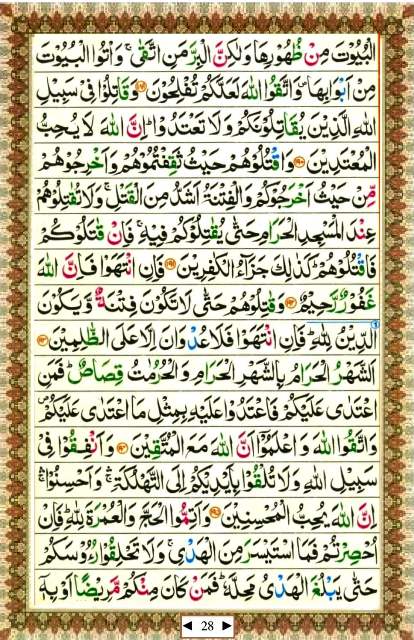 الْبُيُوْتَ مِنْ ظُهُوْرِهَا وَلٰكِنَّ الْبِرَّ مَنِ اتَّقٰى ۚ وَاْتُوا الْبُيُوْتَ
مِنْ اَبْوَابِهَا ۪ وَاتَّقُوا اللّٰهَ لَعَلَّكُمْ تُفْلِحُوْنَ ﴿۱۸۹﴾ وَقَاتِلُوْا فِىْ سَبِيْلِ
اللّٰهِ الَّذِيْنَ يُقَاتِلُوْنَكُمْ وَلَا تَعْتَدُوْا ؕ اِنَّ اللّٰهَ لَا يُحِبُّ
الْمُعْتَدِيْنَ ﴿۱۹۰﴾ وَاقْتُلُوْهُمْ حَيْثُ ثَقِفْتُمُوْهُمْ وَاَخْرِجُوْهُمْ
مِّنْ حَيْثُ اَخْرَجُوْكُمْ وَالْفِتْنَةُ اَشَدُّ مِنَ الْقَتْلِ ۚ وَلَا تُقٰتِلُوْهُمْ
عِنْدَ الْمَسْجِدِ الْحَرَامِ حَتّٰى يُقٰتِلُوْكُمْ فِيْهِ ۚ فَاِنْ قٰتَلُوْكُمْ
فَاقْتُلُوْهُمْ ؕ كَذٰلِكَ جَزَآءُ الْكٰفِرِيْنَ ﴿۱۹۱﴾ فَاِنِ انْتَهَوْا فَاِنَّ اللّٰهَ
غَفُوْرٌ رَّحِيْمٌ ﴿۱۹۲﴾ وَقٰتِلُوْهُمْ حَتّٰى لَا تَكُوْنَ فِتْنَةٌ وَّيَكُوْنَ
الدِّيْنُ لِلّٰهِ ؕ فَاِنِ انْتَهَوْا فَلَا عُدْوَانَ اِلَّا عَلَى الظّٰلِمِيْنَ ﴿۱۹۳﴾
اَلشَّهْرُ الْحَرَامُ بِالشَّهْرِ الْحَرَامِ وَالْحُرُمٰتُ قِصَاصٌ ؕ فَمَنِ
اعْتَدٰى عَلَيْكُمْ فَاعْتَدُوْا عَلَيْهِ بِمِثْلِ مَا اعْتَدٰى عَلَيْكُمْ ۪
وَاتَّقُوا اللّٰهَ وَاعْلَمُوْٓا اَنَّ اللّٰهَ مَعَ الْمُتَّقِيْنَ ﴿۱۹۴﴾ وَاَنْفِقُوْا فِىْ
سَبِيْلِ اللّٰهِ وَلَا تُلْقُوْا بِاَيْدِيْكُمْ اِلَى التَّهْلُكَةِ ۛۚ وَاَحْسِنُوْا ۛۚ
اِنَّ اللّٰهَ يُحِبُّ الْمُحْسِنِيْنَ ﴿۱۹۵﴾ وَاَتِمُّوا الْحَجَّ وَالْعُمْرَةَ لِلّٰهِ ؕ فَاِنْ
اُحْصِرْتُمْ فَمَا اسْتَيْسَرَ مِنَ الْهَدْىِ ۚ وَلَا تَحْلِقُوْا رُءُوْسَكُمْ
حَتّٰى يَبْلُغَ الْهَدْىُ مَحِلَّهٗ ؕ فَمَنْ كَانَ مِنْكُمْ مَّرِيْضًا اَوْ بِهٖۤ
28